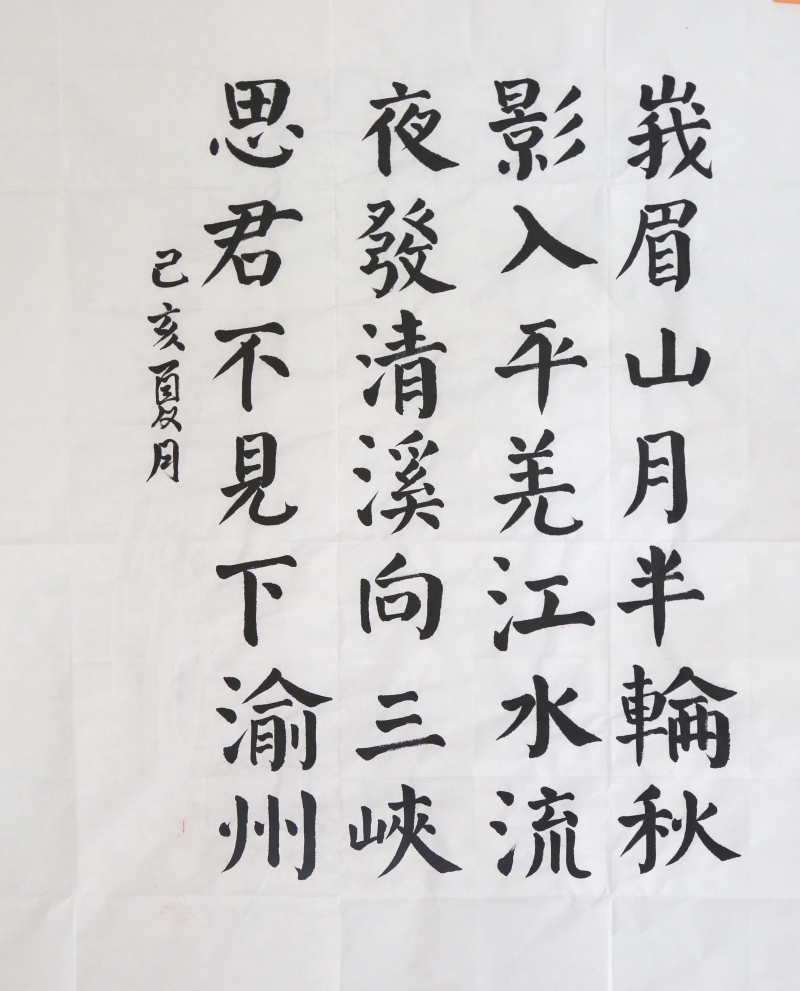 峩眉山月半輪秋
影入平羌江水流
夜發清溪向三峽
思君不見下渝州
己亥夏月